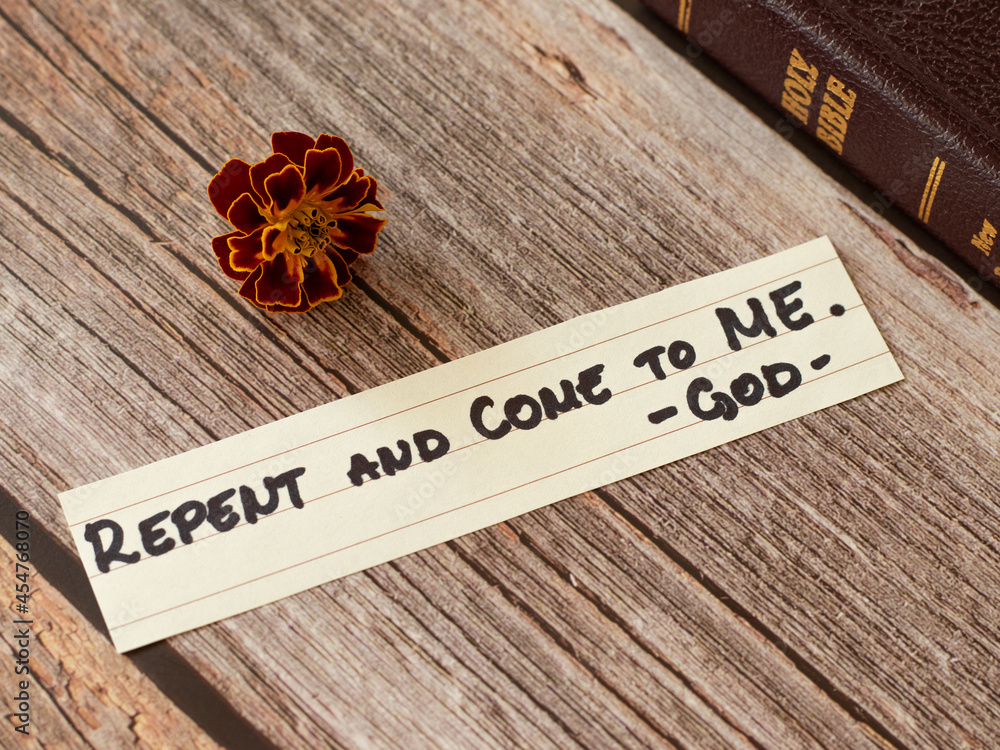 HOLY
BIBLE
New
REPENT AND COME TO ME.
-GOD-
Adobe Stock | #454768070